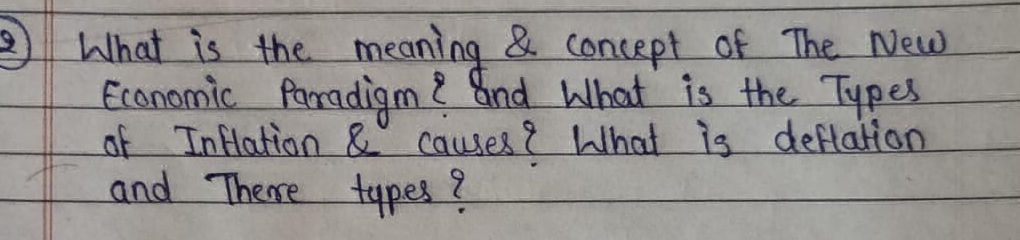 2) What is the meaning & concept of The New
Economic Paradigm? and What is the Types
of Inflation & causes? What is deflation
and There types?